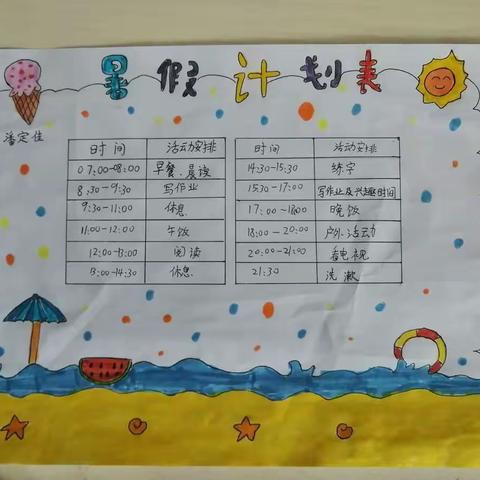 暑假计划表
潘定佳
时间 活动安排
07:00-08:00 早餐、晨读
8:30-9:30 写作业
9:30-11:00 休息
11:00-12:00 午饭
12:00-13:00 阅读
13:00-14:30 休息
时间 活动安排
14:30-15:30 练字
15:30-17:00 写作业及兴趣时间
17:00-18:00 晚饭
18:00-20:00 户外活动
20:00-21:00 看电视
21:30 洗漱